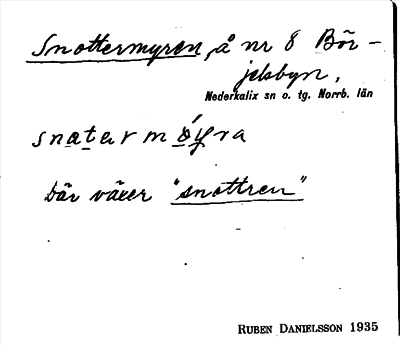 Snottermyren, å nr 8 Bör-
jelsbyn,
Nederkalix sn o. tg. Norrb. län
snatarmøyra
Där växer "snottren"
RUBEN DANIELSSON 1935